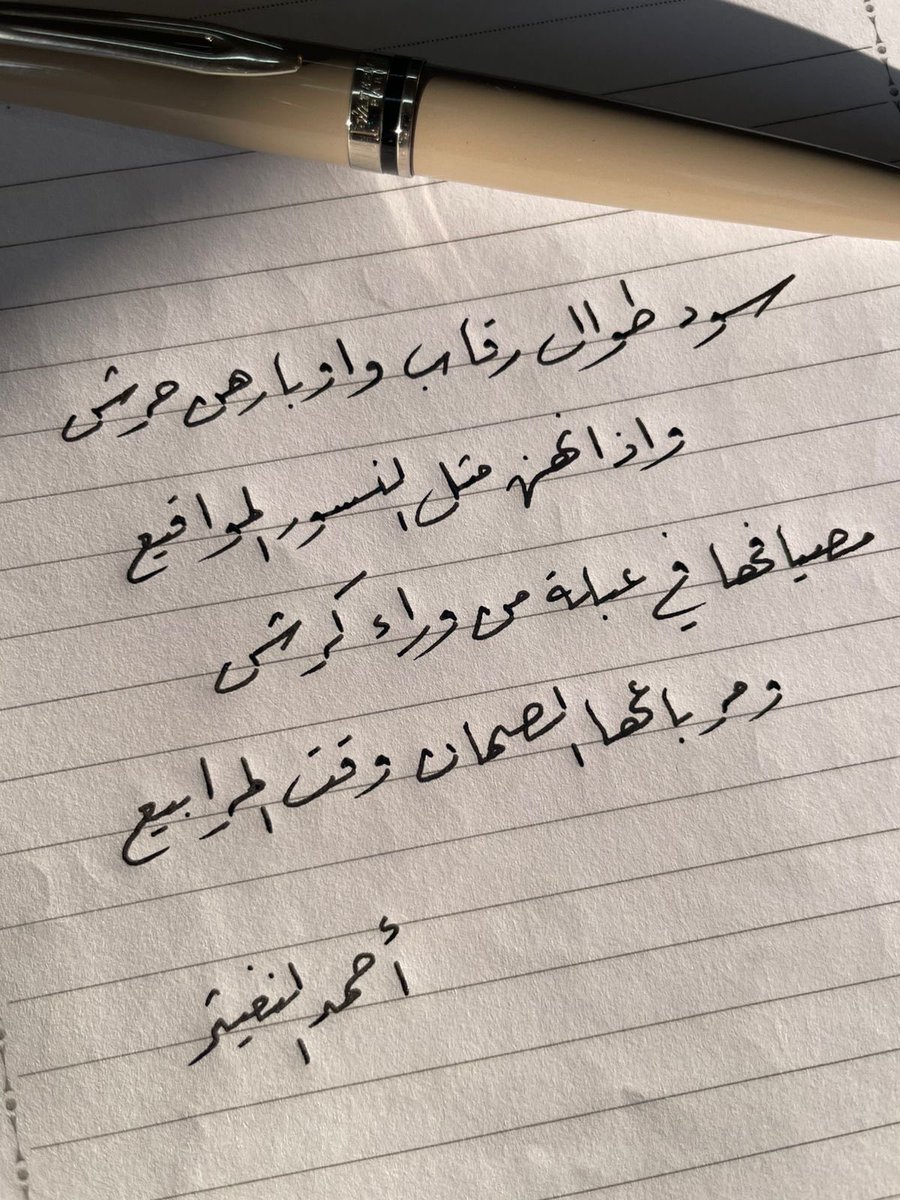 سود طوال رقاب واوبارهن حرش
واذانهن مثل النسور المواقيع
مصيافها في عبلة من وراء كرش
ومرباعها الصمان وقت المرابيع
أحمد